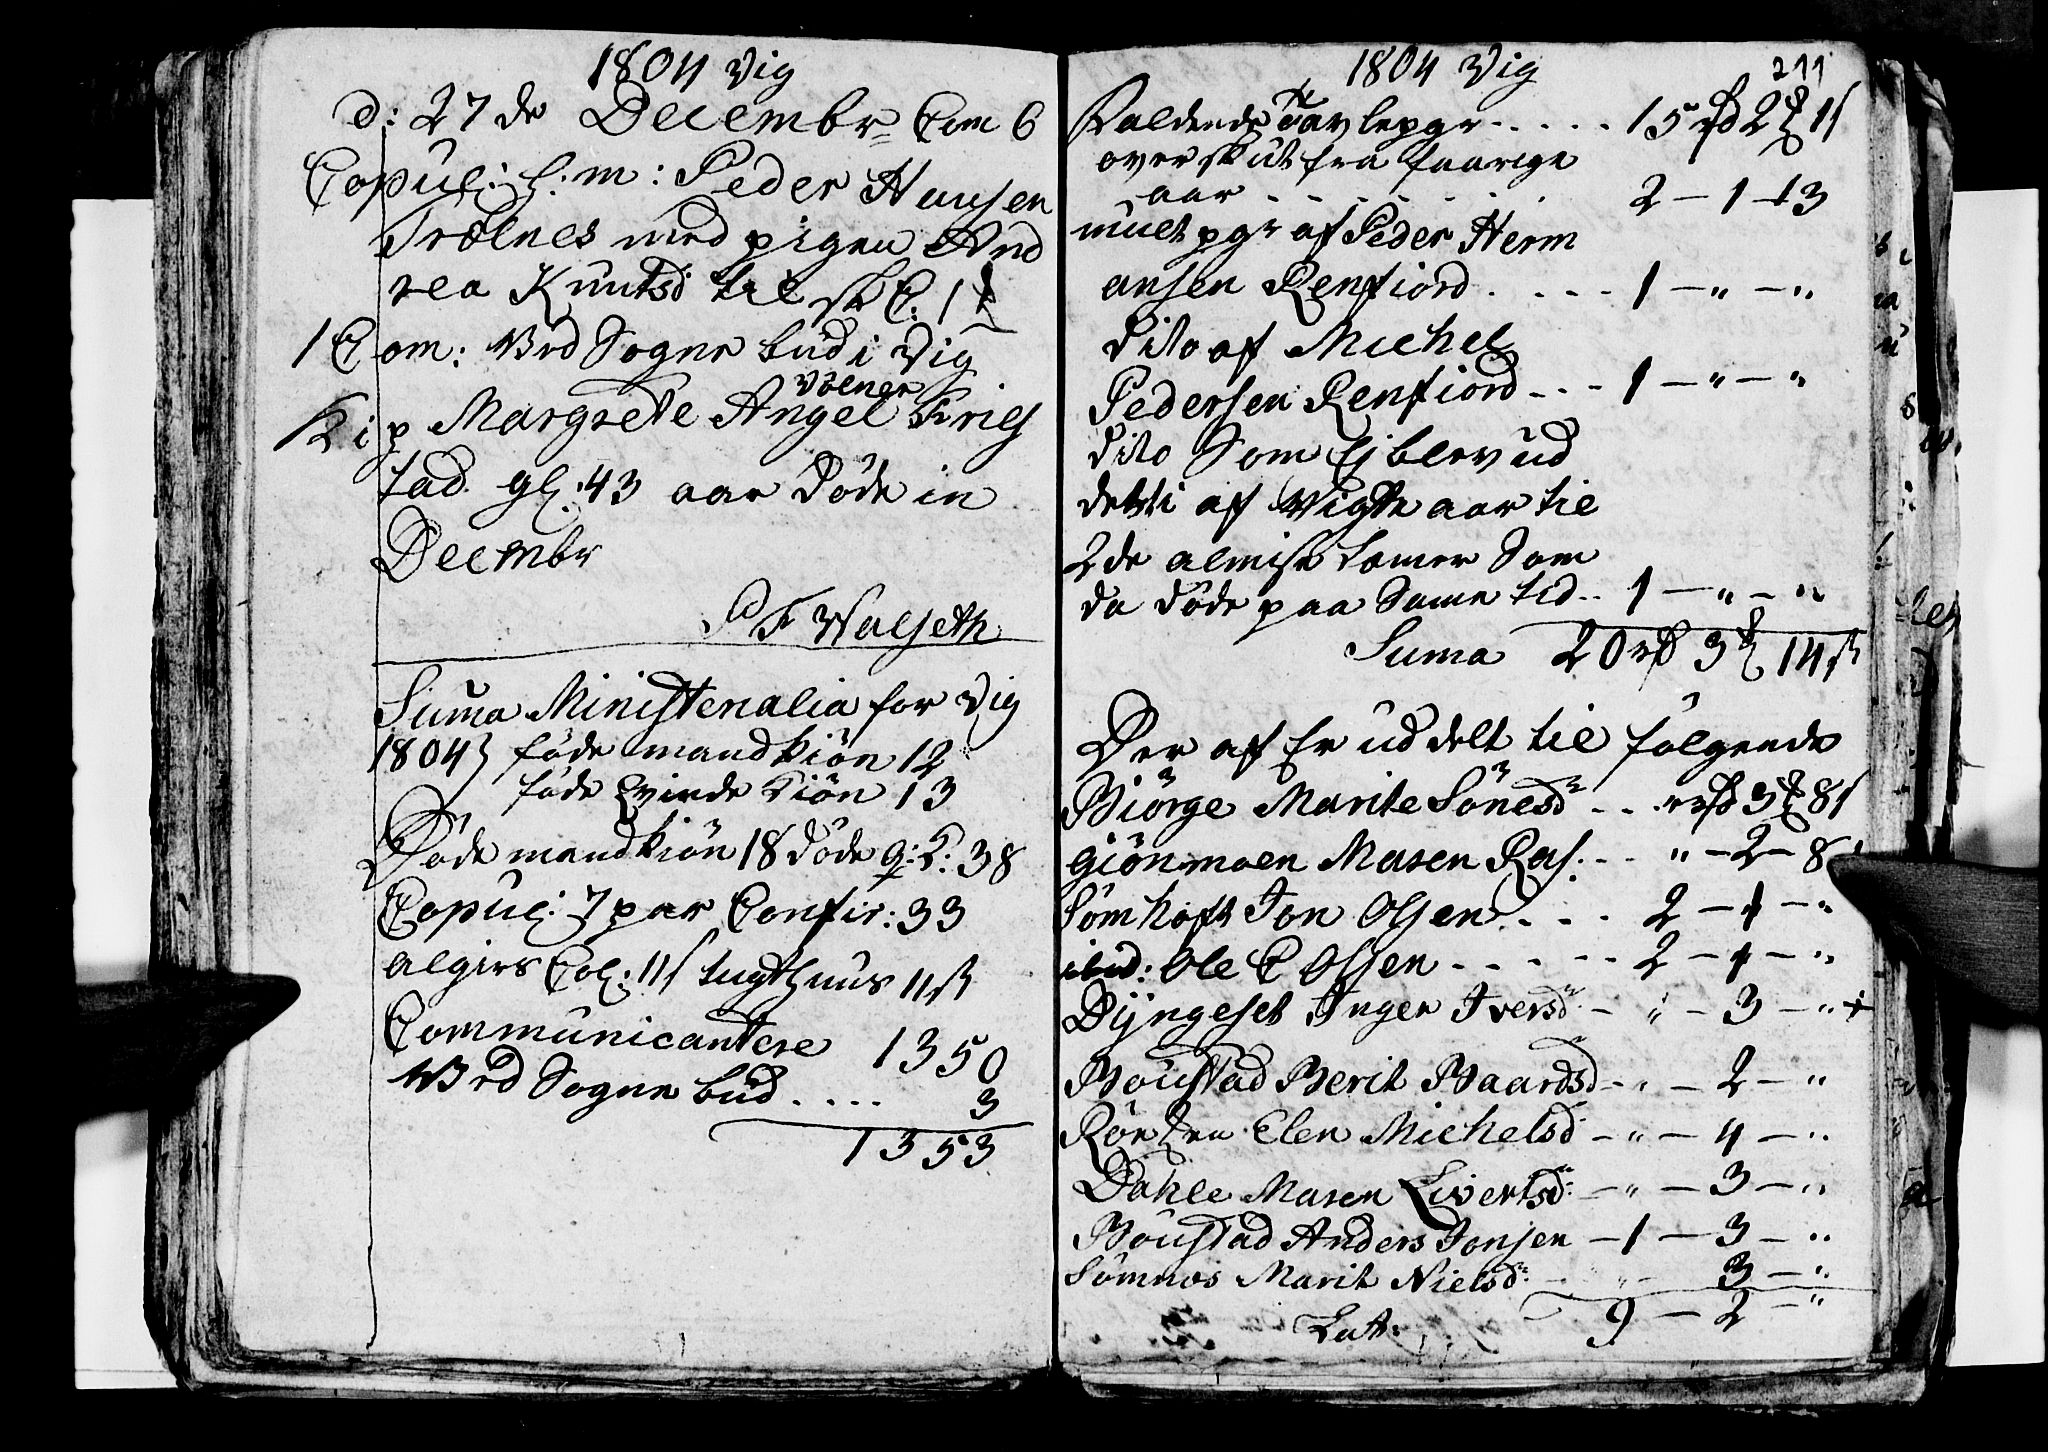 1804 Vig
d: 27 de Decembr Com 6
Copul: h: m: Peder Hansen
Trælnes med pigen And
rea Knutsd til sk C: 1
1 Com: Ved Sogne bud i Vig
Vælner
K i p Margrete Angel Friis
tad gl: 43 aar døde in
Decembr
Walseth
Suma Ministerialia for Vig
1804 føde mandkiøn 12
føde Qvinde Kiøn 13
Døde mandkiøn 18 døde q: K: 38
Copul: 7 par Confir: 33
algiers Col: 11 s tugthuus 11 s
Communicantere 1350
Ved Sogne bud .... 3
1353
1804 Vig 211
Tavlepgr ..... 15 rd 2 1 s
overskut fra faarige
aar ...... 2 - 1 - 13
mulct pgr af Peder Herm
ansen Renfiord .... 1 - " - "
dito af Michel
Pedersen Renfiord ... 1 - " - "
dito Som Ej blev ud
delt i af Vigte aar til
2de almisse Lemer Som
da døde paa Same tid .. 1 - " - "
Suma 20 rd 3 14 s
Der af Er uddelt til følgende
Biørge Marite Sønesd .. rd 3 8 s
giønmoen Maren Ras: .. " - 2 - 8
Sømhoft Jon Olsen .... 2 - 1 - "
ibid: Ole C Olsen ..... 2 - 1 - "
Dyngeset Inger Iversd - " - 3 - "
Boustad Berit Baardsd - " - 2 - "
Røe Elen Michelsd - " - 4 - "
Dahle Maren Sivertsd: - " - 3 - "
Boustad Anders Jonsen - 1 - 3 - "
Sømnes Marit Nielsd: - " - 3 - "
Lat: 9 - 2 - "